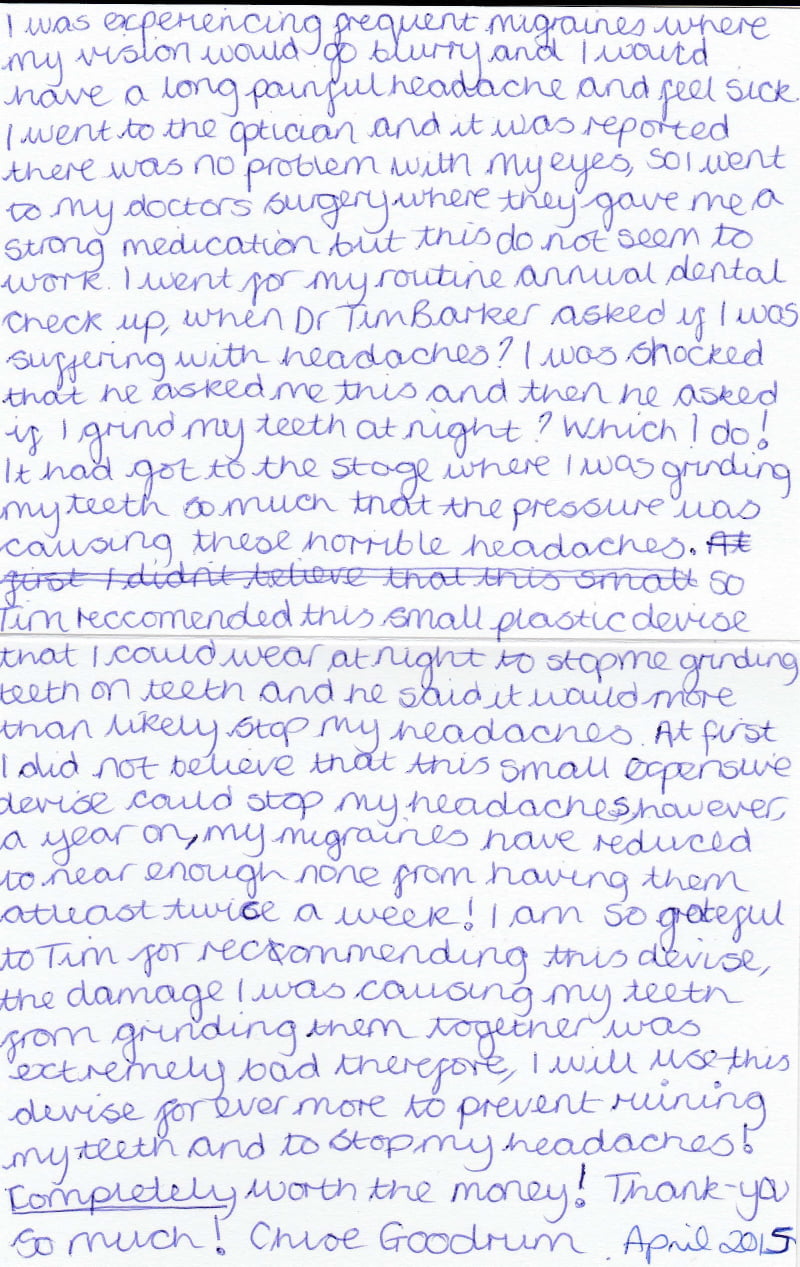 I was experiencing frequent migraines where
my vision would go blurry and I would
have a long painful headache and feel sick.
I went to the optician and it was reported
there was no problem with my eyes, so I went
to my doctors surgery where they gave me a
strong medication but this do not seem to
work. I went for my routine annual dental
check up, when Dr Tim Barker asked if I was
suffering with headaches? I was shocked
that he asked me this and then he asked
if I grind my teeth at night? Which I do!
It had got to the stage where I was grinding
my teeth so much that the pressure was
causing these horrible headaches. At
first I didn't believe that this small so
Tim reccomended this small plastic devise
that I could wear at night to stop me grinding
teeth on teeth and he said it would more
than likely stop my headaches. At first
I did not believe that this small expensive
devise could stop my headaches, however,
a year on, my migraines have reduced
to near enough none from having them
atleast twice a week! I am so grateful
to Tim for recommending this devise,
the damage I was causing my teeth
from grinding them together was
extremely bad therefore, I will use this
devise for ever more to prevent ruining
my teeth and to stop my headaches!
Completely worth the money! Thank-you
so much! Chloe Goodrum April 2015